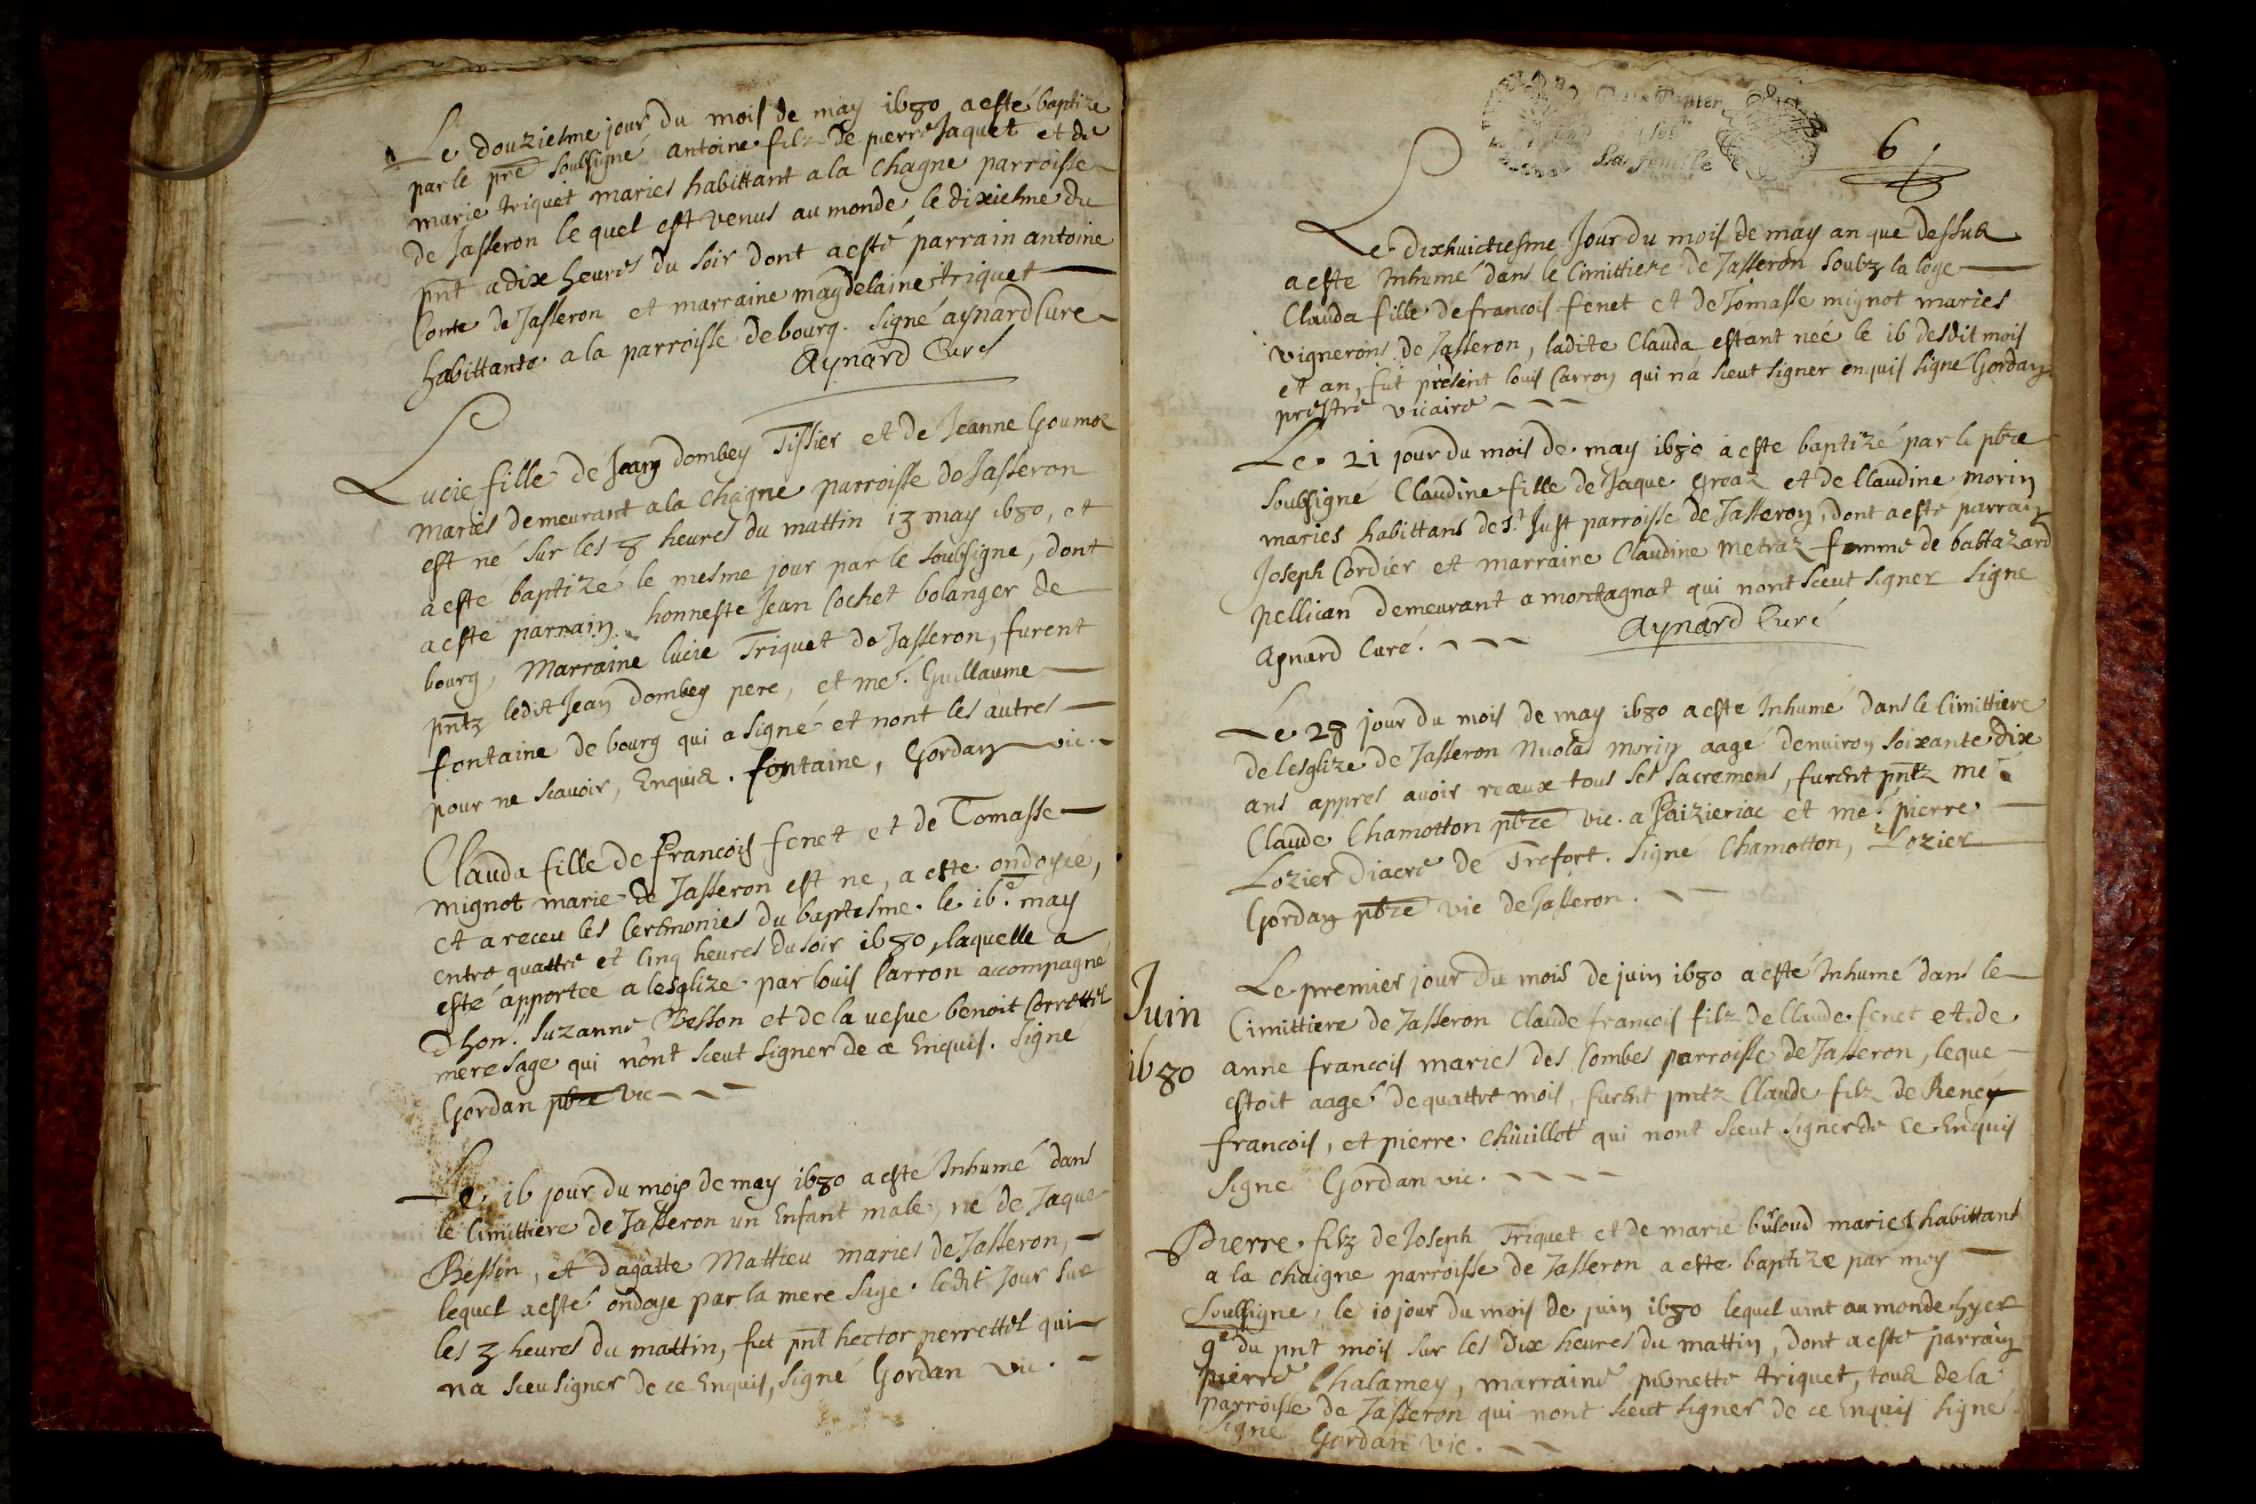 Le douziesme jour du mois de may 1680 a esté baptize
par le pre soubsigné antoine filz de pierre Jaquet et de
marie triquet mariés habittant a la Chagne parroisse
de Jasseron le quel est venus au monde le dixiesme du
pnt a dix heures du soir dont a esté parrain antoine
Conte de Jasseron et marraine magdelaine triquet
habittante a la parroisse de bourg. Signé aynard Curé
Aynard Curé
Lucie fille de Jean dombey Tissier et de Jeanne Goumoz
mariés demeurant a la Chagne parroisse de Jasseron
est né sur les 8 heures du mattin 13 may 1680, et
a esté baptizé le mesme jour par le soubsigne, dont
a esté parrain honneste Jean Cochet bolanger de
bourg, Marraine lucie Triquet de Jasseron, furent
pntz ledit Jean dombey pere, et me. Guillaume
fontaine de bourg qui a signé et nont les autres
pour ne scavoir, Enquis. fontaine, Gordan vic.
Clauda fille de francois fenet et de Tomasse
mignot marie de Jasseron est ne, a este ondoyée,
et a receu les Ceremonies du baptesme le 16e may
entre quattre et cinq heures du soir 1680, laquelle a
esté apportée a lesglize par louis Carron accompagné
d'hon. Suzanne Besson et de la vesve benoit Correttel
mere sage qui n'ont sceut signer de ce Enquis. Signé
Gordan pbre vic
Le 16 jour du mois de may 1680 a esté Inhumé dans
le Cimittiere de Jasseron un Enfant male, né de Jaque
Besson, et d'agatte Mattieu mariés de Jasseron,
lequel a esté ondoye par la mere sage ledit Jour sur
les 3 heures du mattin, fut pnt hector perrettel qui
na sceu signer de ce Enquis, Signé Gordan vic.
6
Le dixhuictiesme Jour du mois de may an que dessus
a esté Inhumé dans le Cimittiere de Jasseron soubz la loge
Clauda fille de francois fenet et de Tomasse mignot mariés
vignerons de Jasseron, ladite Clauda estant neé le 16 desdit mois
et an, fut présent louis Carron qui n'a sceut signer enquis Signé Gordan
prestre vicaire
Le 21 jour du mois de may 1680 a esté baptizé par le pbre
soubsigné Claudine fille de Jaque greaz et de Claudine morin
mariés habittans de St Just parroisse de Jasseron, dont a esté parrain
Joseph Cordier et marraine Claudine metraz femme de baltazard
pellican demeurant a montagnat qui nont sceut signer Signe
Aynard Curé.
Aynard Curé
Le 28 jour du mois de may 1680 a esté Inhumé dans le Cimittiere
de lesglize de Jasseron Nicolas morin aagé denviron soixante dix
ans appres avoir receux tous ses sacremens, furent pntz me
Claude Chamotton pbre vic. a et me. pierre
Lozier diacre de Trefort. Signé Chamotton, Lozier
Gordan pbre vic de Jasseron.
Juin
1680
Le premier jour du mois de juin 1680 a esté Inhumé dans le
Cimittiere de Jasseron Claude francois filz de Claude fenet et de
anne francois mariés des Combes parroisse de Jasseron, leque
estoit aagé de quattre mois, furent pntz Claude filz de Reney
francois, et pierre Chüillot qui nont sceut signer de ce Enquis
Signe Gordan vic.
Pierre filz de Joseph Triquet et de marie buloud mariés habittans
a la chaigne parroisse de Jasseron a este baptize par moy
Soubsigne, le 10 jour du mois de juin 1680 lequel vint au monde hyer
9e du pnt mois sur les dix heures du mattin, dont a esté parrain
pierre Chalamey, marraine triquet, tous de la
parroisse de Jasseron qui nont sceut signer de ce enquis Signé
Signe Gordan vic.